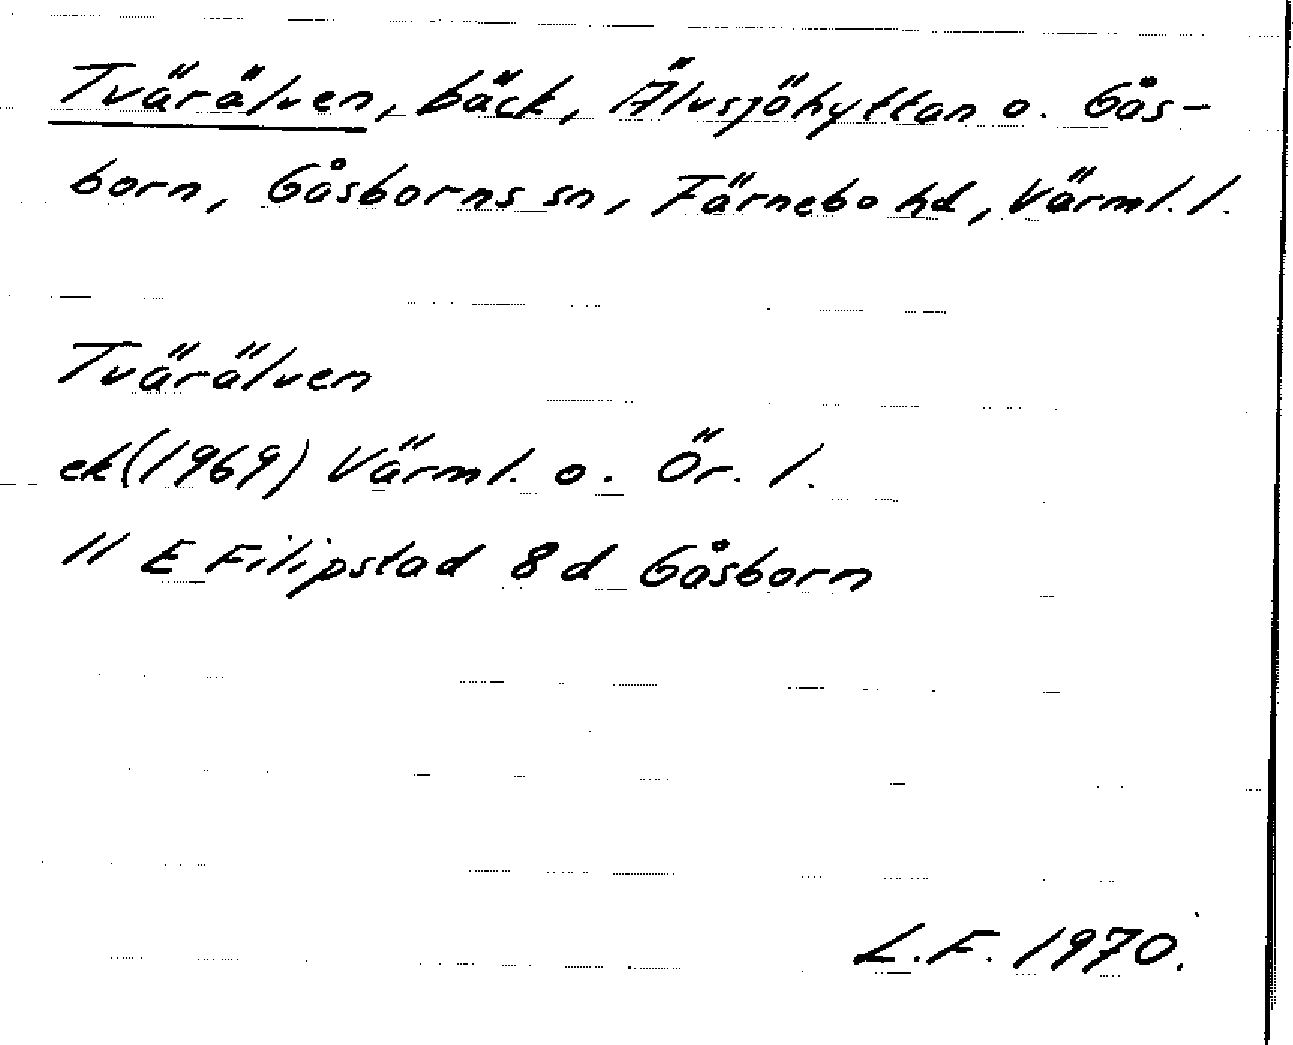 Tvärälven, bäck, Älvsjöhyttan o. Gås-
born, Gåsborns sn, Färnebo hd, Värml. l.
Tvärälven
ek (1969) Värml. o. Ör. l.
11 E Filipstad 8 d Gåsborn
L.F. 1970.